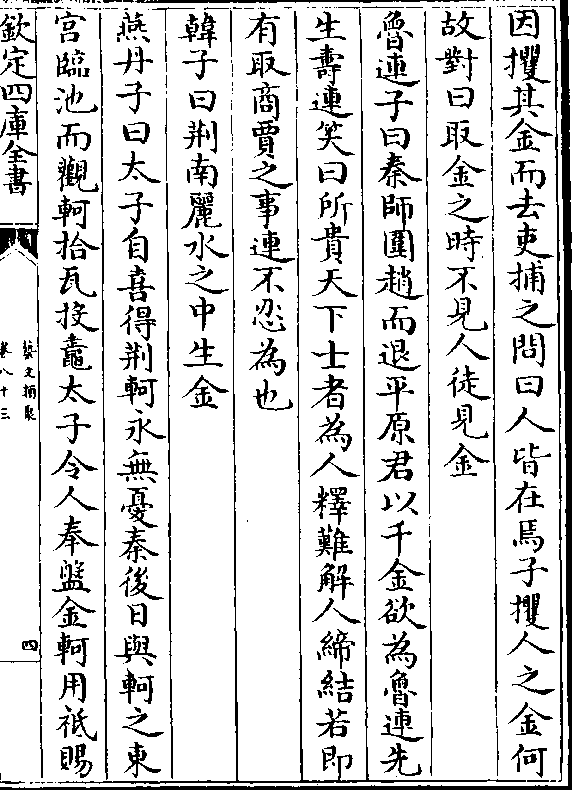 因攫其金而去吏捕之問曰人皆在焉子攫人之金何
故對曰取金之時不見人徒見金
魯連子曰秦師圍趙而退平原君以千金欲為魯連先
生壽連笑曰所貴天下士者為人釋難解人締結若即
有取商賈之事連不忍為也
韓子曰荆南麗水之中生金
燕丹子曰太子自喜得荆軻永無憂秦後日與軻之東
宮臨池而觀軻拾瓦投鼃太子令人奉盤金軻用抵賜
欽定四庫全書
藝文類聚
卷八十三
四